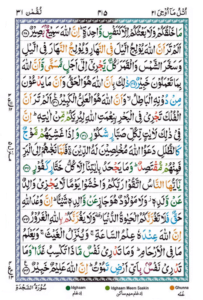 لقمٰن ٣١
اتل ما اوحی ٢١
مَا خَلْقُكُمْ وَلَا بَعْثُكُمْ اِلَّا كَنَفْسٍ وَّاحِدَةٍ ؕ اِنَّ اللّٰهَ سَمِیْعٌۢ بَصِیْرٌ
اَلَمْ تَرَ اَنَّ اللّٰهَ یُوْلِجُ الَّیْلَ فِی النَّهَارِ وَیُوْلِجُ النَّهَارَ فِی الَّیْلِ
وَسَخَّرَ الشَّمْسَ وَالْقَمَرَ ؗ كُلٌّ یَّجْرِیْۤ اِلٰۤی اَجَلٍ مُّسَمًّی وَّاَنَّ اللّٰهَ
بِمَا تَعْمَلُوْنَ خَبِیْرٌ ذٰلِكَ بِاَنَّ اللّٰهَ هُوَ الْحَقُّ وَاَنَّ مَا یَدْعُوْنَ
مِنْ دُوْنِهِ الْبَاطِلُ ۙ وَاَنَّ اللّٰهَ هُوَ الْعَلِیُّ الْكَبِیْرُ اَلَمْ تَرَ اَنَّ
الْفُلْكَ تَجْرِیْ فِی الْبَحْرِ بِنِعْمَتِ اللّٰهِ لِیُرِیَكُمْ مِّنْ اٰیٰتِهٖ ؕ اِنَّ
فِیْ ذٰلِكَ لَاٰیٰتٍ لِّكُلِّ صَبَّارٍ شَكُوْرٍ وَاِذَا غَشِیَهُمْ مَّوْجٌ
كَالظُّلَلِ دَعَوُا اللّٰهَ مُخْلِصِیْنَ لَهُ الدِّیْنَ ۬ فَلَمَّا نَجّٰىهُمْ اِلَی الْبَرِّ
فَمِنْهُمْ مُّقْتَصِدٌ ؕ وَمَا یَجْحَدُ بِاٰیٰتِنَاۤ اِلَّا كُلُّ خَتَّارٍ كَفُوْرٍ
یٰۤاَیُّهَا النَّاسُ اتَّقُوْا رَبَّكُمْ وَاخْشَوْا یَوْمًا لَّا یَجْزِیْ وَالِدٌ
عَنْ وَّلَدِهٖ ؗ وَلَا مَوْلُوْدٌ هُوَ جَازٍ عَنْ وَّالِدِهٖ شَیْـًٔا ؕ اِنَّ وَعْدَ اللّٰهِ
حَقٌّ فَلَا تَغُرَّنَّكُمُ الْحَیٰوةُ الدُّنْیَا ٥ وَلَا یَغُرَّنَّكُمْ بِاللّٰهِ الْغَرُوْرُ
اِنَّ اللّٰهَ عِنْدَهٗ عِلْمُ السَّاعَةِ ۚ وَیُنَزِّلُ الْغَیْثَ ۚ وَیَعْلَمُ
مَا فِی الْاَرْحَامِ ؕ وَمَا تَدْرِیْ نَفْسٌ مَّاذَا تَكْسِبُ غَدًا ؕ وَمَا
تَدْرِیْ نَفْسٌۢ بِاَیِّ اَرْضٍ تَمُوْتُ ؕ اِنَّ اللّٰهَ عَلِیْمٌ خَبِیْرٌ
Iqhfaam
Iqhfaam Meem Saakin
Ghunna